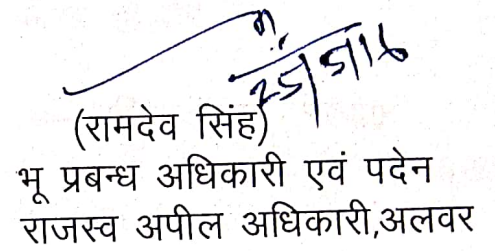 25/5/16
(रामदेव सिंह)
भू प्रबन्ध अधिकारी एवं पदेन
राजस्व अपील अधिकारी,अलवर